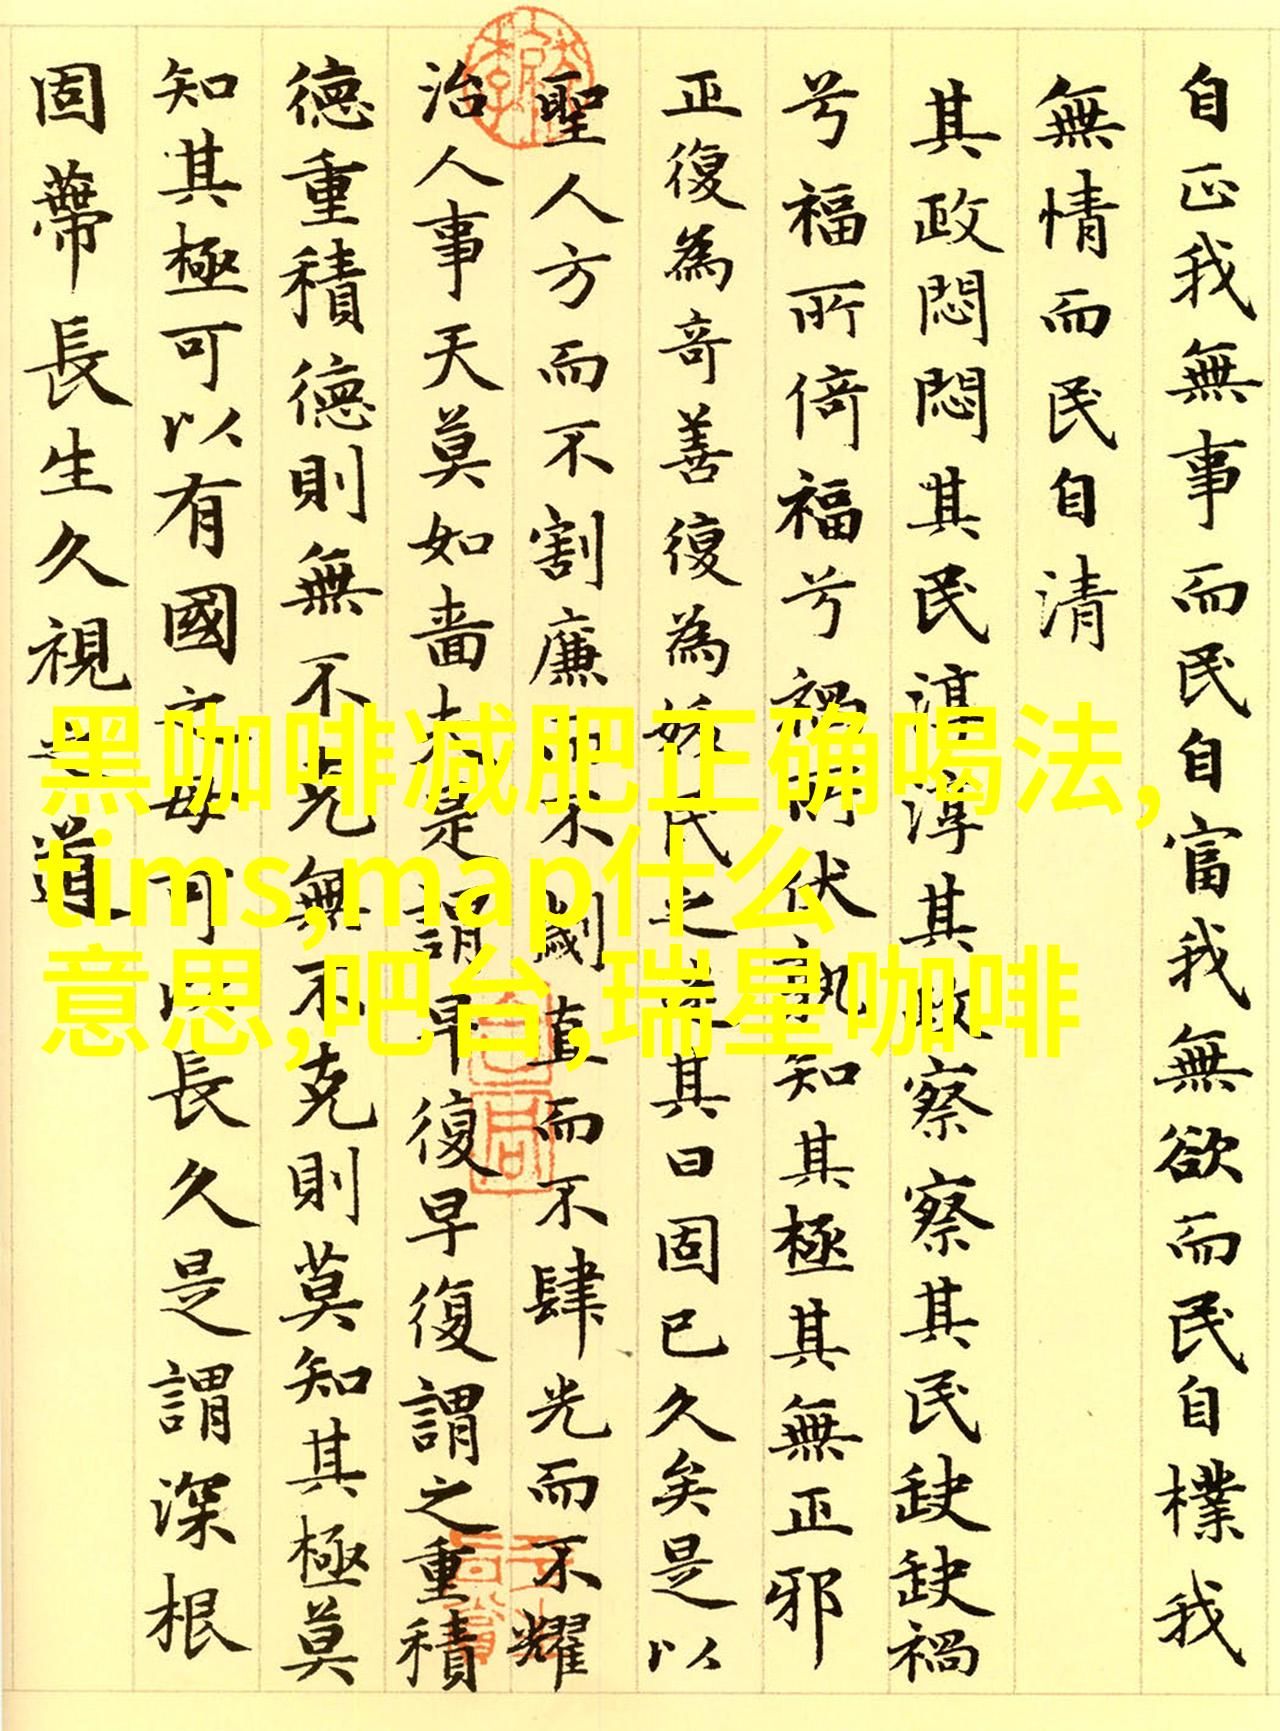 自正我無事而民自富我無欲而民自樸我
無情而民自清
其政悶悶其民淳淳其政察察其民缺缺禍
兮福所倚福兮禍所伏孰知其極其無正邪
正復為奇善復為妖民之迷其日固已久矣是以
聖人方而不割廉而不劌直而不肆光而不耀
治人事天莫如嗇夫是謂早復早復謂之重積
德重積德則無不克無不克則莫知其極莫
知其極可以有國之母可以長久是謂深根
固蔕長生久視之道
黑咖啡减肥正确喝法,
tims,map什么
意思,吧台,瑞星咖啡